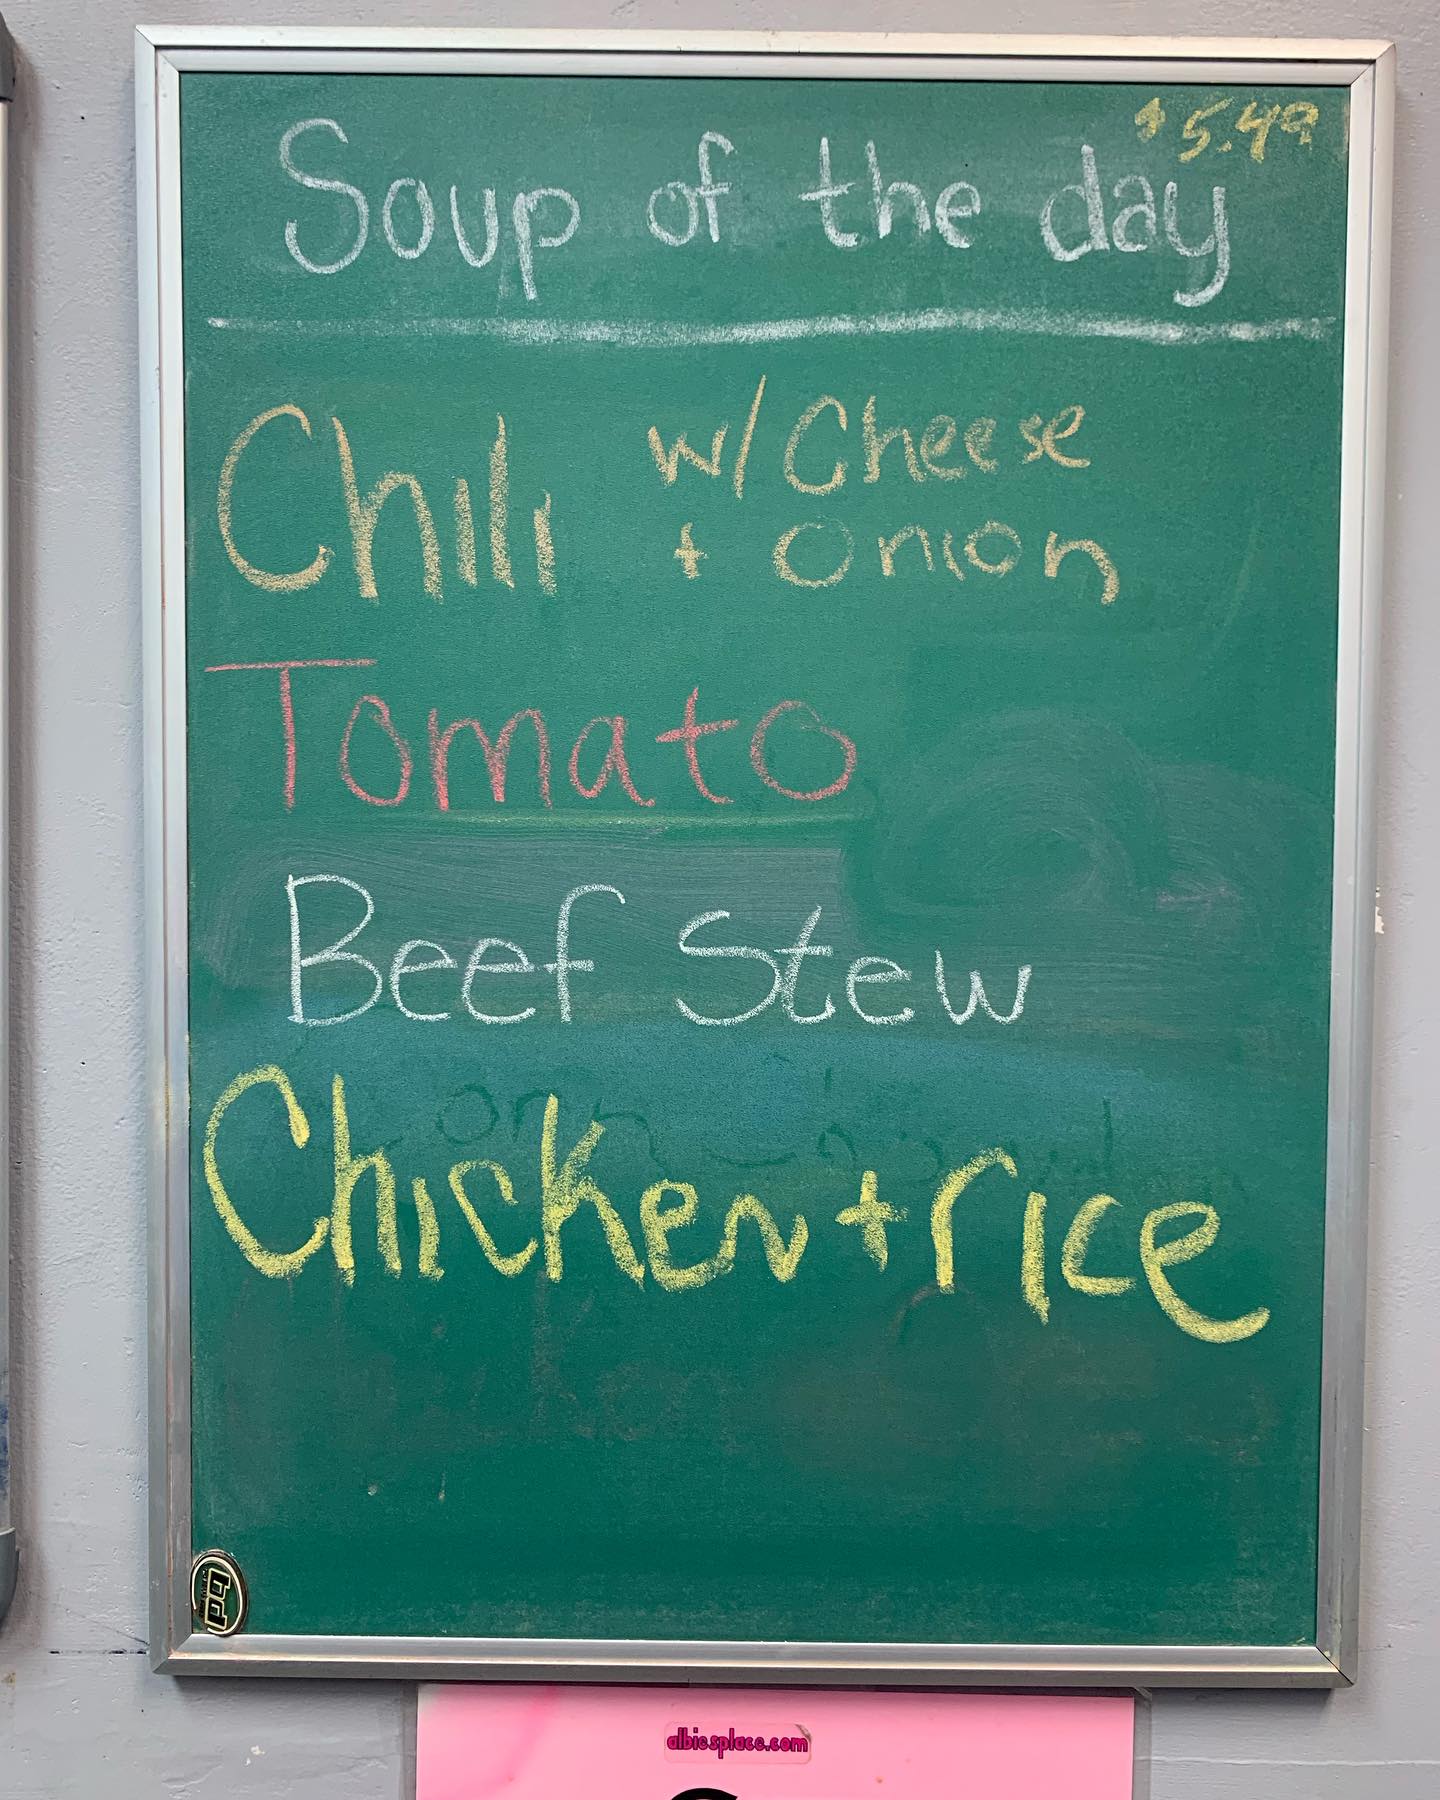 $5.49
Soup of the day
Chili w/ Cheese
+ onion
Tomato
Beef Stew
Chicken + rice
albiesplace.com